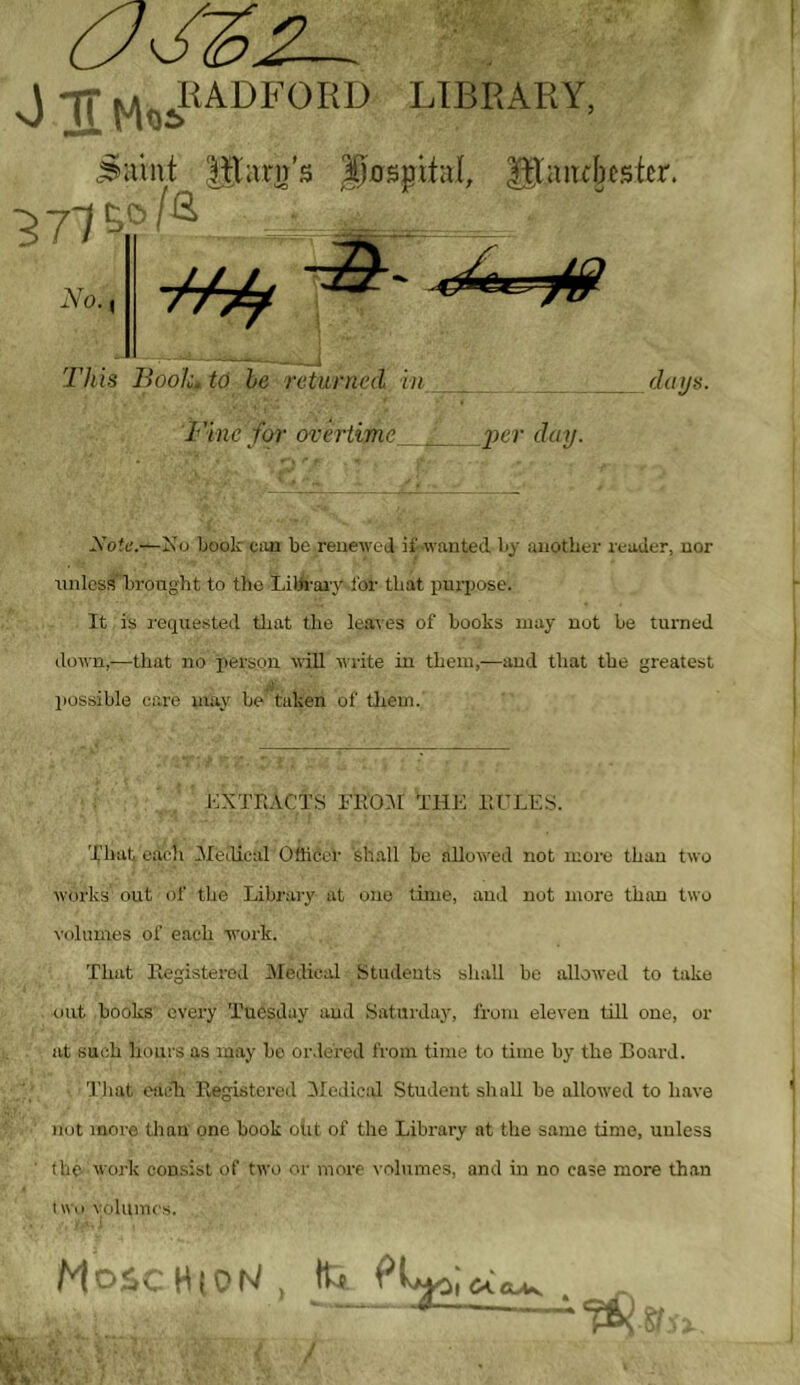 J II Mos
RADFORD LIBRARY,
Saint Mary's Hospital, Manchester.
37750/B
No.
This Book, to be returned in days.
Fine for overtime per day.
Note.—No book can be renewed if wanted by another reader, nor
unless brought to the Library for that purpose.
It is requested that the leaves of books may not be turned
down,—that no person will write in them,—and that the greatest
possible care may be taken of them.
EXTRACTS FROM THE RULES.
That each Medical Officer shall be allowed not more than two
works out of the Library at one time, and not more than two
volumes of each work.
That Registered Medical Students shall be allowed to take
out books every Tuesday and Saturday, from eleven till one, or
at such hours as may be ordered from time to time by the Board.
That each Registered Medical Student shall be allowed to have
not more than one book out of the Library at the same time, unless
the work consist of two or more volumes, and in no case more than
two volumes.
MOSCHION, the Physician.